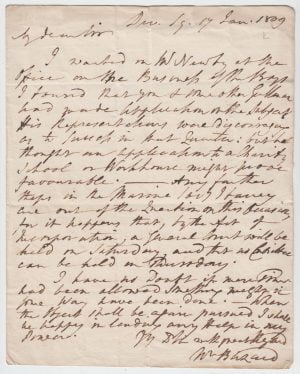 Dev. Sq. 17 Jan. 1809
My dear Sir
I waited on Mr Newby at the
Office on the Business of the Boys
I found that you & another Gentleman
had made application on the Subject
His Representations were discouraging
as to Success in that Quarter: but he
thought an application to a Charity
School or Workhouse might prove
favourable. — Any further
Steps in the Marine I fancy
are out of the Question on this occasion
for it happens that, by the Act of
Incorporation a general Court will be
held on Saturday, and that no Committee
can be held on Thursday.
I have no doubt if more Time
had been allowed Something might in
some way have been done. — When
the Object shall be again pursued I shall
be happy in lending every Help in my
Power.
My D Sir with great regard
Wm Blizard